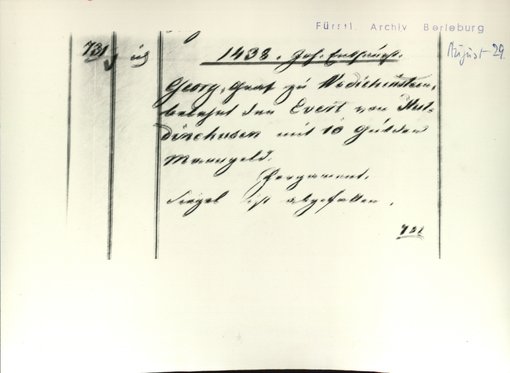 Fürstl. Archiv Berleburg
August 29.
731
1438. Joh. Enthaupt.
Georg, Graf zu Wittgenstein,
belehnt den Evert von
mit 10 Gulden
Manngeld.
Pergament.
Siegel ist abgefallen.